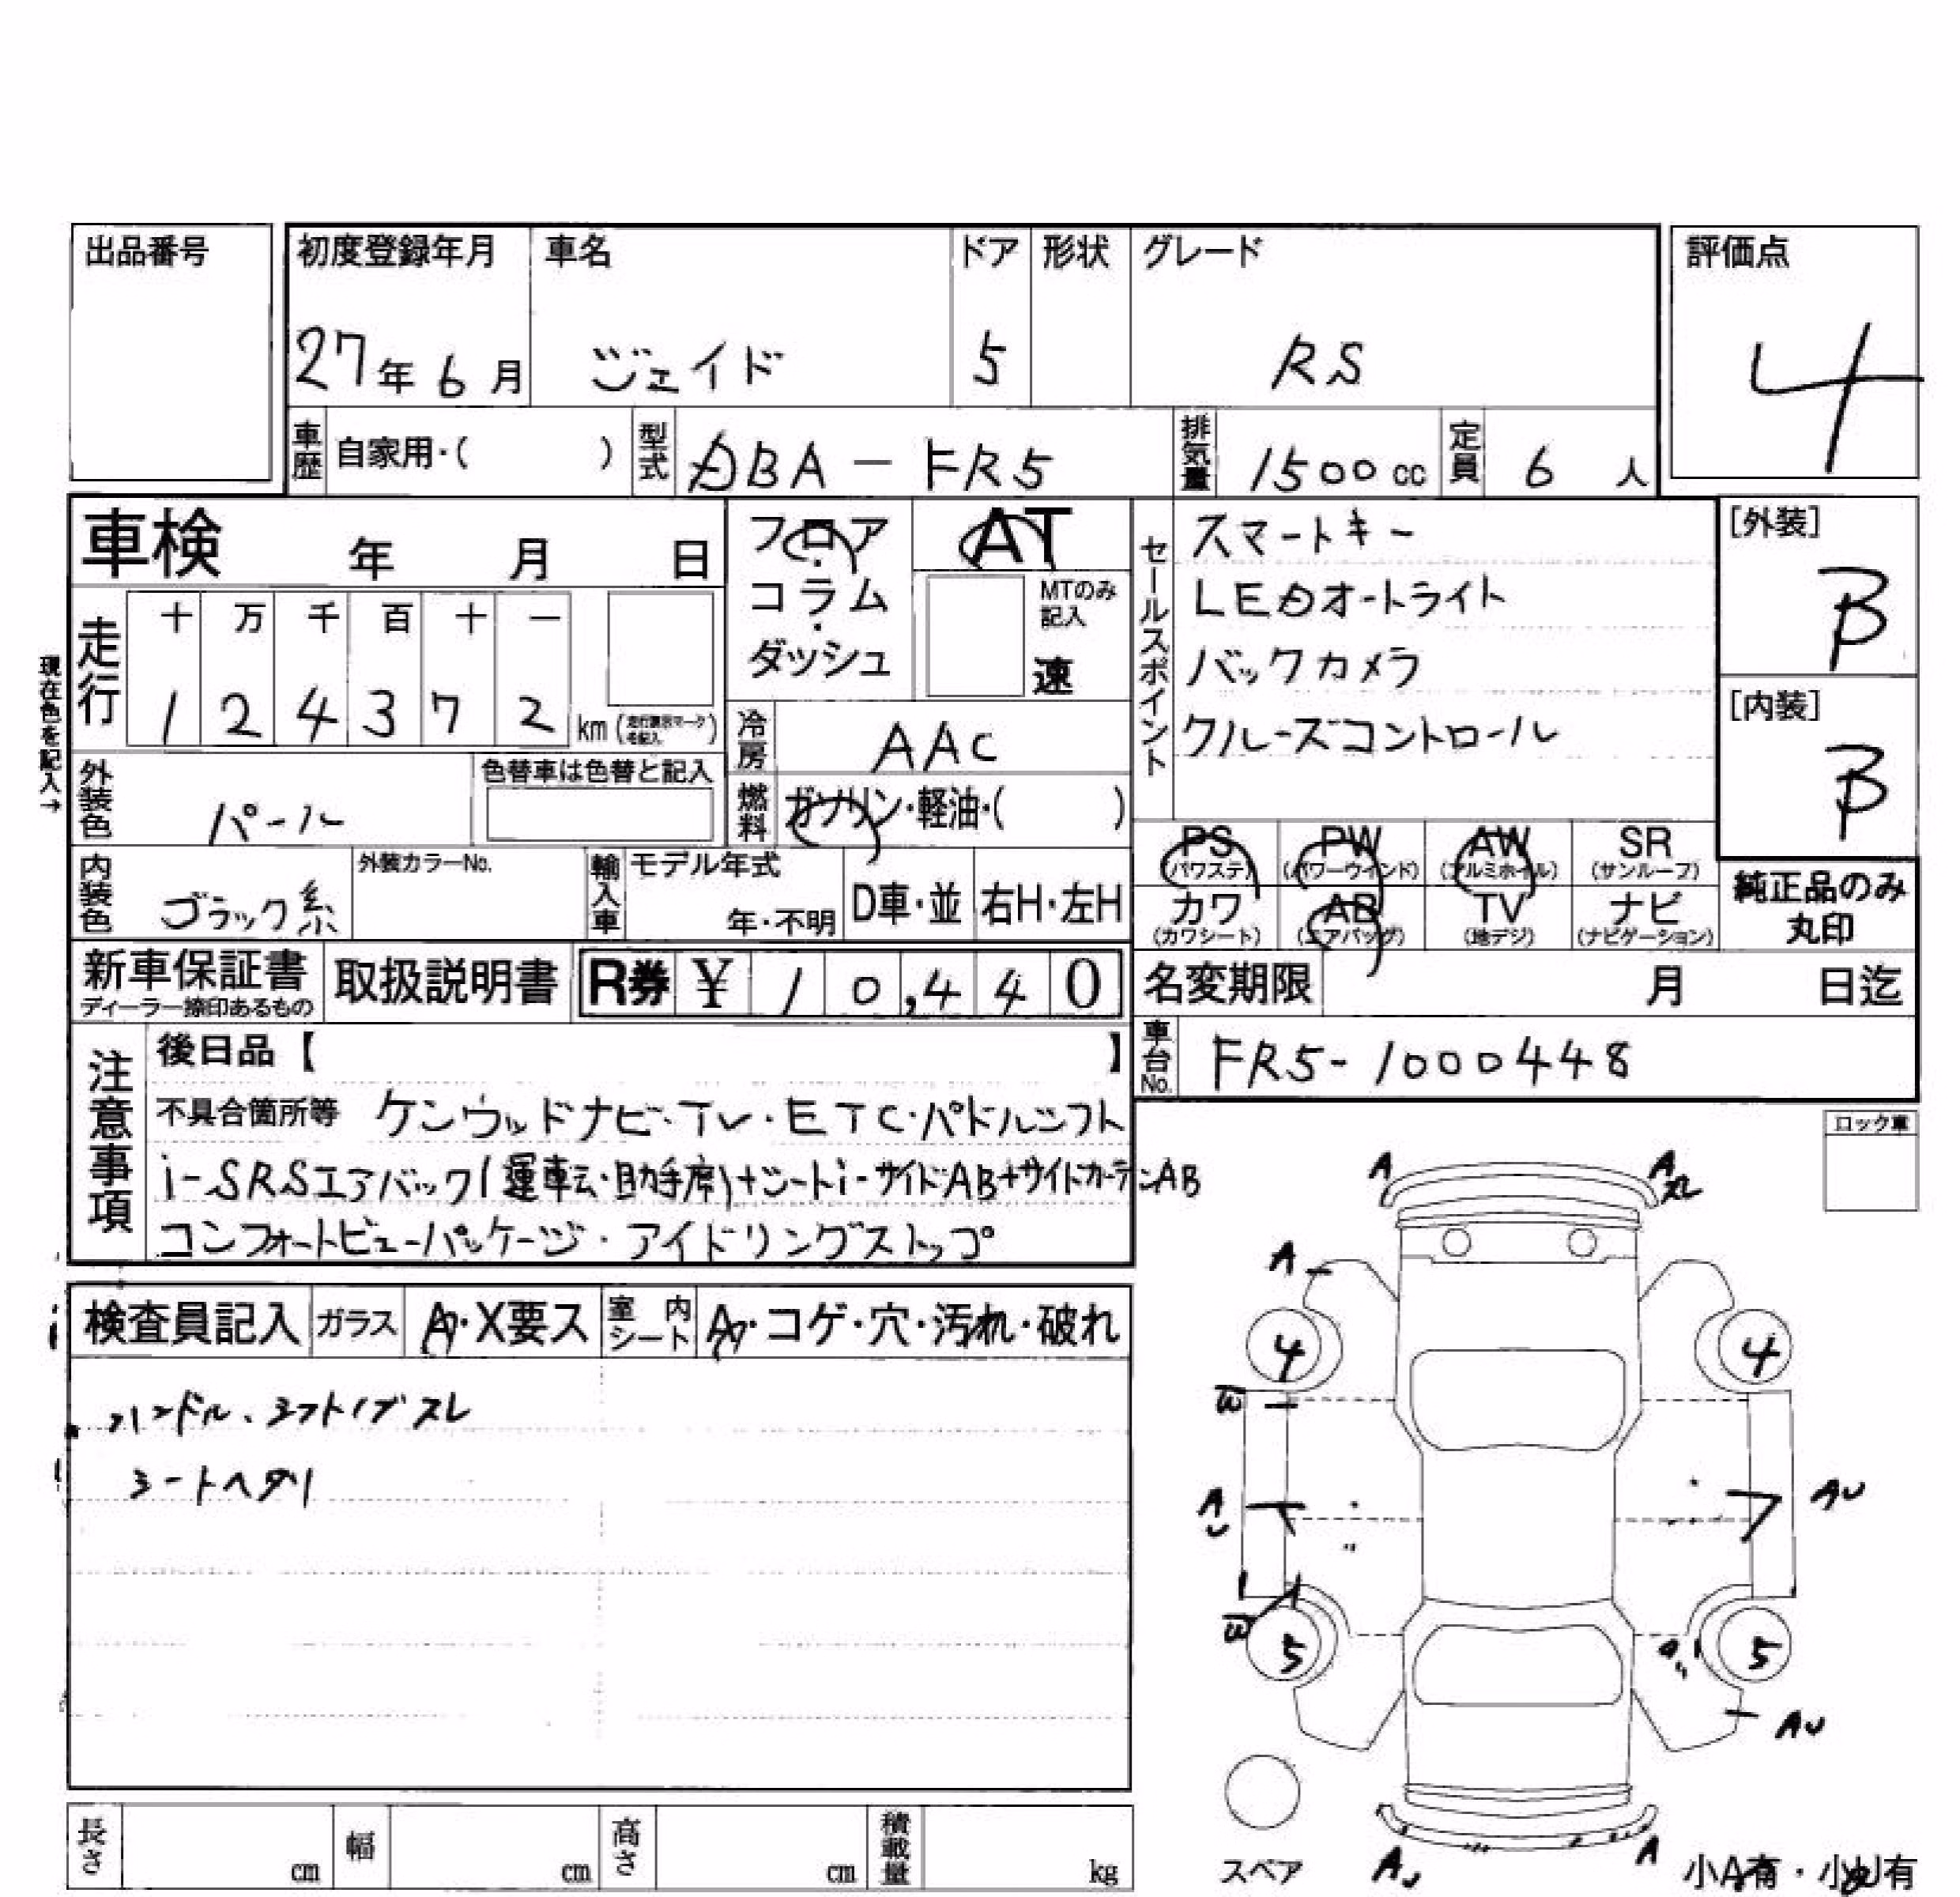 出品番号
初度登録年月 車名 ドア 形状 グレード 評価点
27年6月 ジェイド 5 RS 4
車歴 自家用・( ) 型式 DBA-FR5 排気量 1500cc 定員 6人
車検 年 月 日
フロア・コラム・ダッシュ
AT
MTのみ記入
速
セールスポイント
スマートキー
LEDオートライト
バックカメラ
クルーズコントロール
[外装]
B
[内装]
B
現在色を記入→
走行
十 万 千 百 十 一
1 2 4 3 7 2 km
冷房 AAC
外装色 パール 色替車は色替と記入
燃料 ガソリン・軽油・( )
PS PW AW SR
(パワステ) (パワーウインド) (アルミホイル) (サンルーフ)
カワ AB TV ナビ
(カワシート) (エアバッグ) (地デジ) (ナビゲーション)
純正品のみ
丸印
内装色 ブラック系 外装カラーNo. 輸入車 モデル年式 年・不明 D車・並 右H・左H
新車保証書 取扱説明書 R券 ¥ 10,440 名変期限 月 日迄
ディーラー捺印あるもの
車台No. FR5-1000448
注意事項
後日品【 】
不具合箇所等 ケンウッドナビ・TV・ETC・パドルシフト
i-SRSエアバック(運転・助手席)+シートi-サイドAB+サイドカーテンAB
コンフォートビューパッケージ・アイドリングストップ
ロック車
検査員記入 ガラス A・X要ス 室内シート A・コゲ・穴・汚れ・破れ
ハンドル、シフトノブスレ
シートヘタリ
A A
スレ
A
4 4
W
AU AU
W
5 5
AU
AU A
スペア
小A有・小U有
長さ cm 幅 cm 高さ cm 積載量 kg